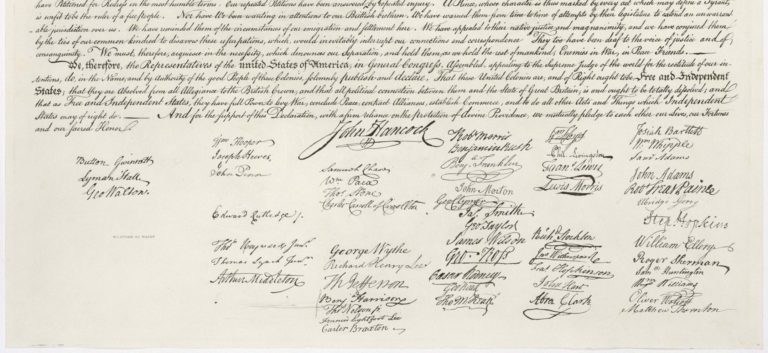 have Petitioned for Redress in the most humble terms: Our repeated Petitions have been answered by repeated injury. A Prince, whose character is thus marked by every act which may define a Tyrant,
is unfit to be the ruler of a free people. Nor have We been wanting in attentions to our Brittish brethren. We have warned them from time to time of attempts by their legislature to extend an unwarrant-
able jurisdiction over us. We have reminded them of the circumstances of our emigration and settlement here. We have appealed to their native justice and magnanimity, and we have conjured them
by the ties of our common kindred to disavow these usurpations, which, would inevitably interrupt our connections and correspondence. They too have been deaf to the voice of justice and of
consanguinity. We must, therefore, acquiesce in the necessity, which denounces our Separation, and hold them, as we hold the rest of mankind, Enemies in War, in Peace Friends.
We, therefore, the Representatives of the united States of America, in General Congress, Assembled, appealing to the Supreme Judge of the world for the rectitude of our in-
tentions, do, in the Name, and by Authority of the good People of these Colonies, solemnly publish and declare, That these United Colonies are, and of Right ought to be Free and Independent
States; that they are Absolved from all Allegiance to the British Crown, and that all political connection between them and the State of Great Britain, is and ought to be totally dissolved; and
that as Free and Independent States, they have full Power to levy War, conclude Peace, contract Alliances, establish Commerce, and to do all other Acts and Things which Independent
States may of right do. And for the support of this Declaration, with a firm reliance on the protection of divine Providence, we mutually pledge to each other our Lives, our Fortunes
and our sacred Honor.
John Hancock
Button Gwinnett
Lyman Hall
Geo Walton.
Wm Hooper
Joseph Hewes,
John Penn
Edward Rutledge.
Thos Heyward Junr.
Thomas Lynch Junr.
Arthur Middleton
Samuel Chase
Wm Paca
Thos Stone
Charles Carroll of Carrollton
George Wythe
Richard Henry Lee
Th Jefferson
Benj Harrison
Thos Nelson jr.
Francis Lightfoot Lee
Carter Braxton
Robt Morris
Benjamin Rush
Benj Franklin
John Morton
Geo Clymer
Jas Smith
Geo Taylor
James Wilson
Geo Ross
Caesar Rodney
Geo Read
Tho M:Kean
Wm Floyd
Phil. Livingston
Frans Lewis
Lewis Morris
Richd Stockton
Jno Witherspoon
Fras Hopkinson
John Hart
Abra Clark
Josiah Bartlett
Wm Whipple
Saml Adams
John Adams
Robt Treat Paine
Elbridge Gerry
Step Hopkins
William Ellery
Roger Sherman
Saml Huntington
Wm Williams
Oliver Wolcott
Matthew Thornton